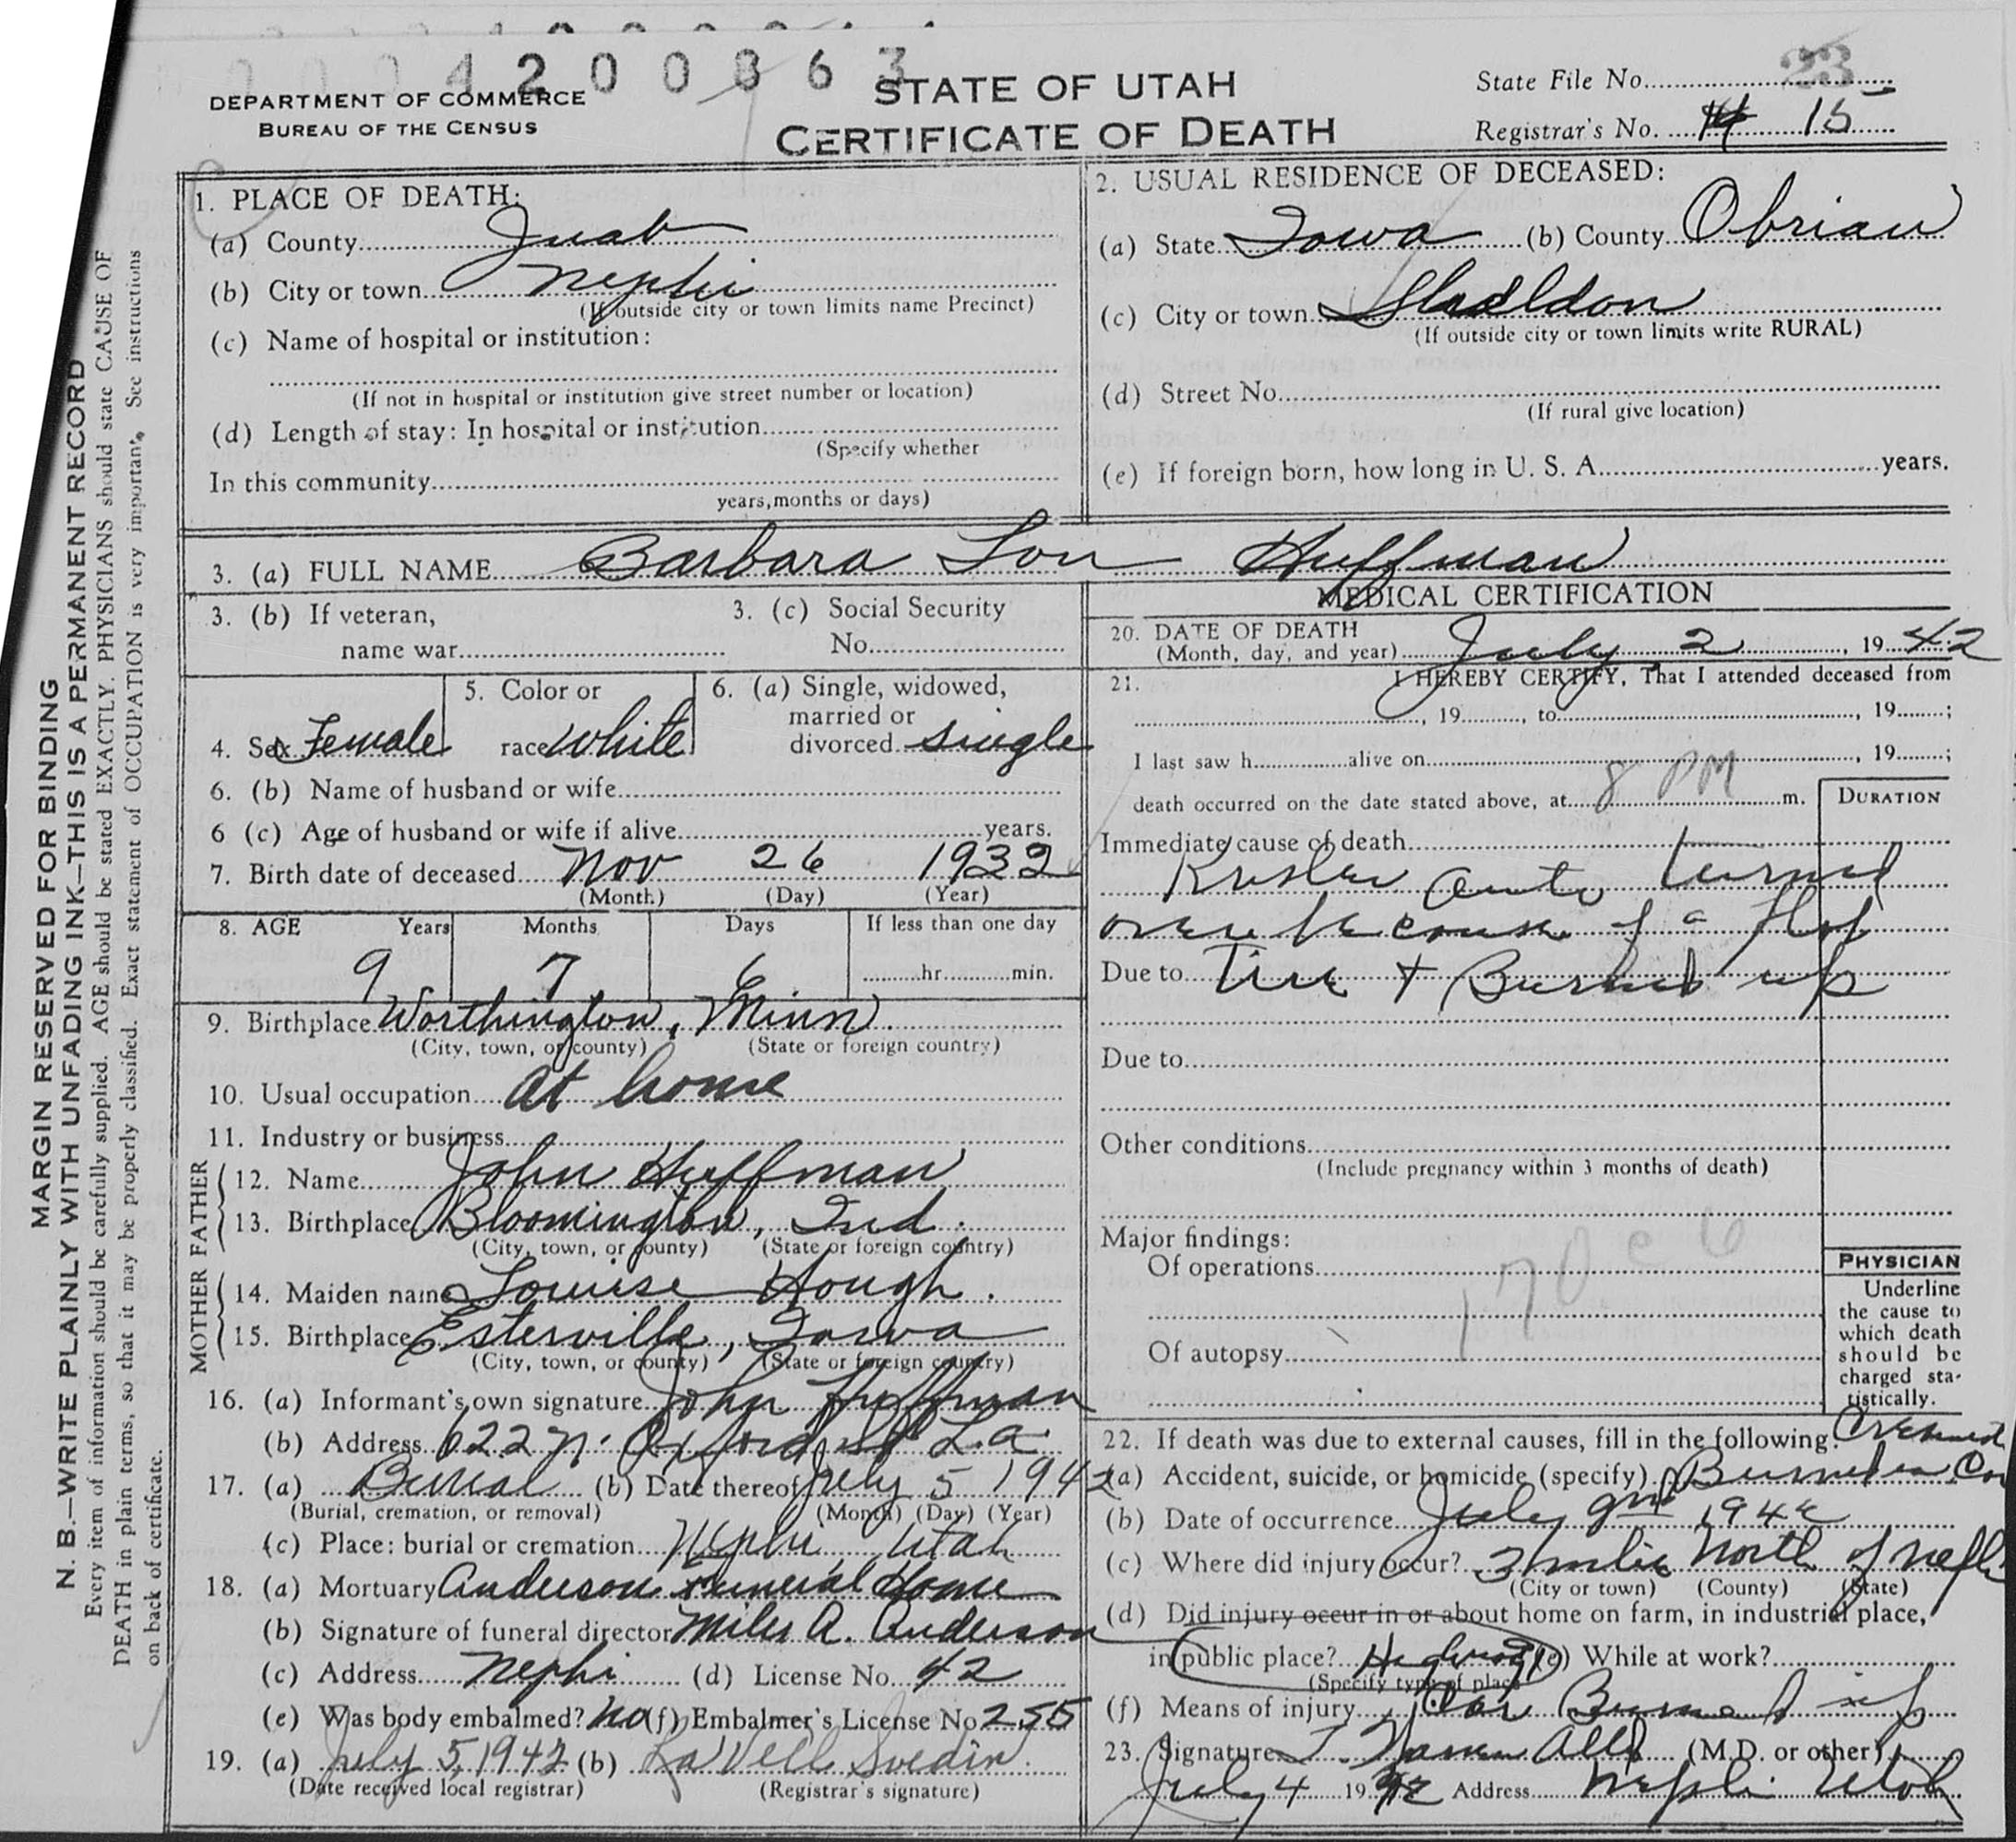 0004200863
23
DEPARTMENT OF COMMERCE
BUREAU OF THE CENSUS
STATE OF UTAH
CERTIFICATE OF DEATH
State File No.
Registrar's No. 14 15
MARGIN RESERVED FOR BINDING
N. B.—WRITE PLAINLY WITH UNFADING INK—THIS IS A PERMANENT RECORD
Every item of information should be carefully supplied. AGE should be stated EXACTLY. PHYSICIANS should state CAUSE OF
DEATH in plain terms, so that it may be properly classified. Exact statement of OCCUPATION is very important. See instructions
on back of certificate.
1. PLACE OF DEATH:
(a) County Juab
(b) City or town Nephi
(If outside city or town limits name Precinct)
(c) Name of hospital or institution:
(If not in hospital or institution give street number or location)
(d) Length of stay: In hospital or institution
(Specify whether
In this community
years, months or days)
2. USUAL RESIDENCE OF DECEASED:
(a) State Iowa (b) County Obrian
(c) City or town Sheldon
(If outside city or town limits write RURAL)
(d) Street No.
(If rural give location)
(e) If foreign born, how long in U. S. A. years.
3. (a) FULL NAME Barbara Lou Huffman
3. (b) If veteran,
name war
3. (c) Social Security
No.
4. Sex Female
5. Color or
race White
6. (a) Single, widowed,
married or
divorced single
6. (b) Name of husband or wife
6 (c) Age of husband or wife if alive years.
7. Birth date of deceased Nov 26 1932
(Month) (Day) (Year)
8. AGE Years Months Days If less than one day
9 7 6 hr. min.
9. Birthplace Worthington, Minn.
(City, town, or county) (State or foreign country)
10. Usual occupation at home
11. Industry or business
FATHER
12. Name John Huffman
13. Birthplace Bloomington, Ind.
(City, town, or county) (State or foreign country)
MOTHER
14. Maiden name Louise Hough.
15. Birthplace Esterville, Iowa
(City, town, or county) (State or foreign country)
16. (a) Informant's own signature John Huffman
(b) Address 622 N. Oxford St L.a.
17. (a) Burial (b) Date thereof July 5 1942
(Burial, cremation, or removal) (Month) (Day) (Year)
(c) Place: burial or cremation Nephi Utah
18. (a) Mortuary Anderson Funeral Home
(b) Signature of funeral director Miles A. Anderson
(c) Address Nephi (d) License No. 42
(e) Was body embalmed? No (f) Embalmer's License No. 255
19. (a) July 5, 1942 (b) LaVell Svedin
(Date received local registrar) (Registrar's signature)
MEDICAL CERTIFICATION
20. DATE OF DEATH
(Month, day, and year) July 2, 1942
21. I HEREBY CERTIFY, That I attended deceased from
, 19 , to , 19 ;
I last saw h alive on , 19 ;
death occurred on the date stated above, at 8 PM m.
DURATION
Immediate cause of death
auto turned
over because of a flat
Due to Tire + Burned up
Due to
Other conditions
(Include pregnancy within 3 months of death)
Major findings:
Of operations
170c6
Of autopsy
PHYSICIAN
Underline
the cause to
which death
should be
charged sta-
tistically.
22. If death was due to external causes, fill in the following:
(a) Accident, suicide, or homicide (specify) Burned in Car
(b) Date of occurrence July 2nd 1942
(c) Where did injury occur? 3 miles North of Nephi
(City or town) (County) (State)
(d) Did injury occur in or about home on farm, in industrial place,
in public place? (e) While at work?
(Specify type of place)
(f) Means of injury Car Burned up
23. Signature (M.D. or other)
July 4 1942 Address Nephi Utah